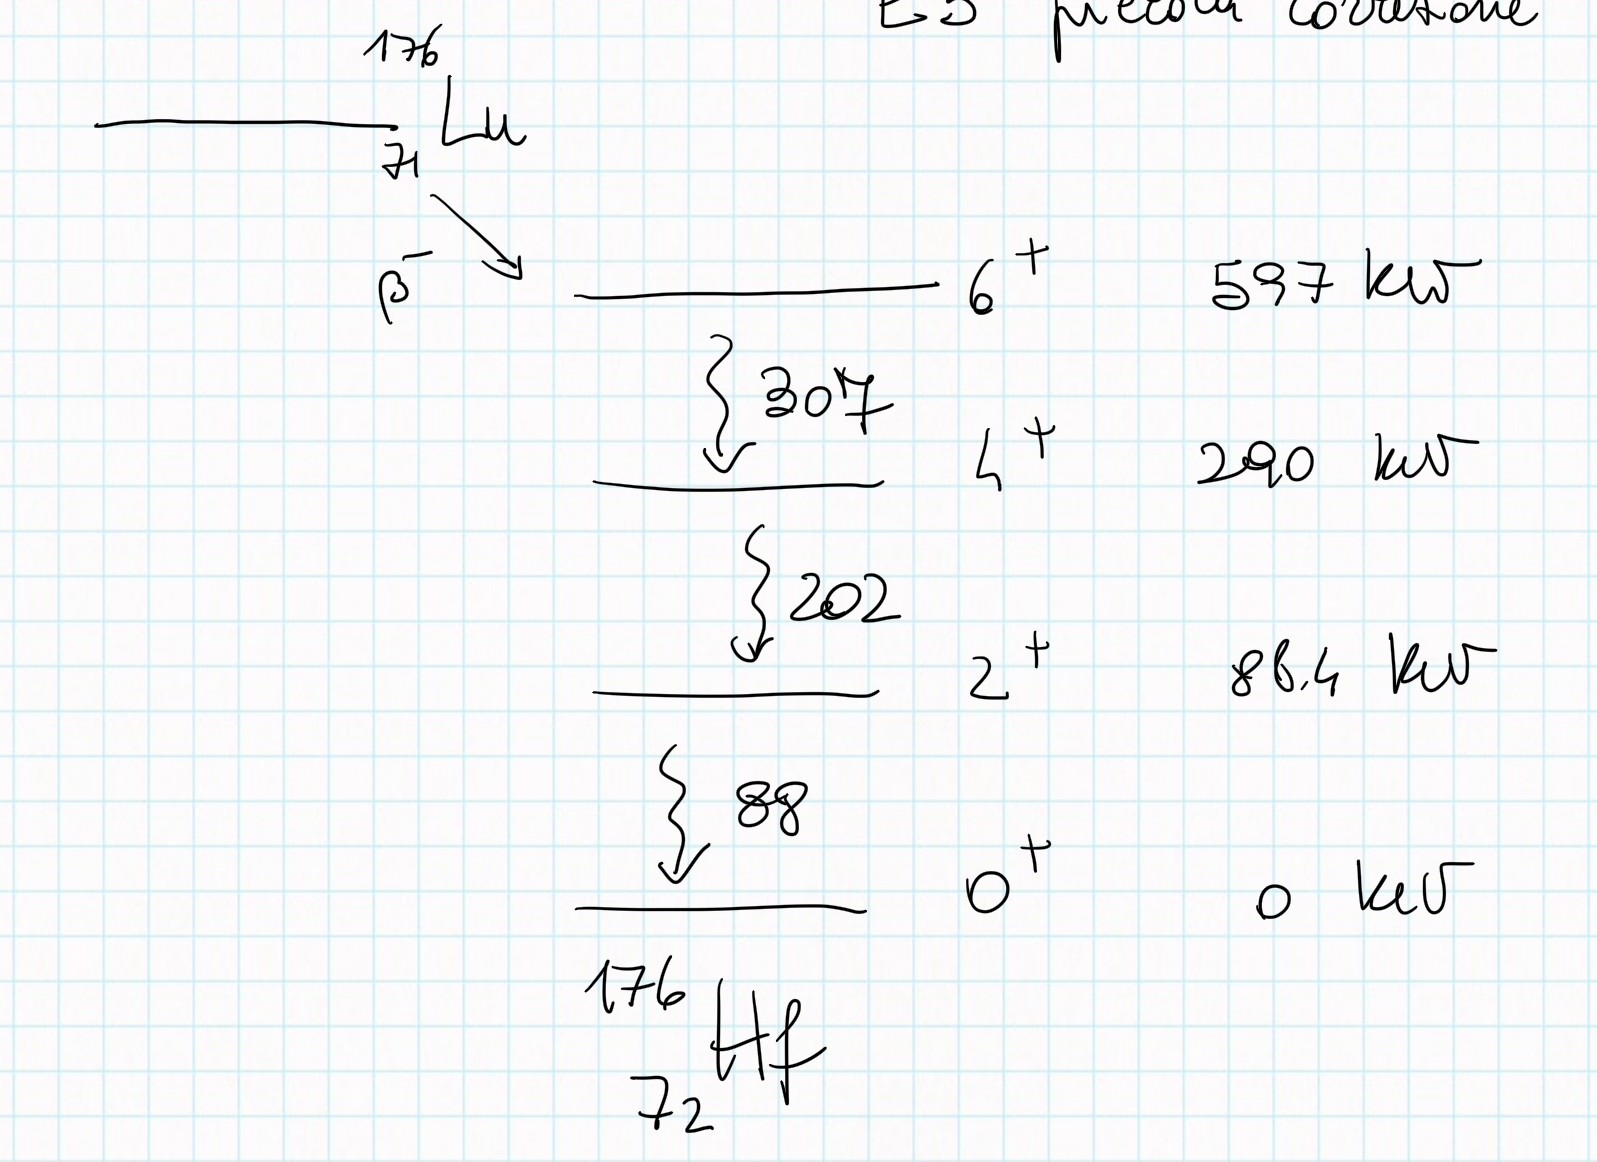 piccola correzione
176
71 Lu
β⁻
6⁺ 597 keV
307
4⁺ 290 keV
202
2⁺ 88.4 keV
88
0⁺ 0 keV
176
72 Hf